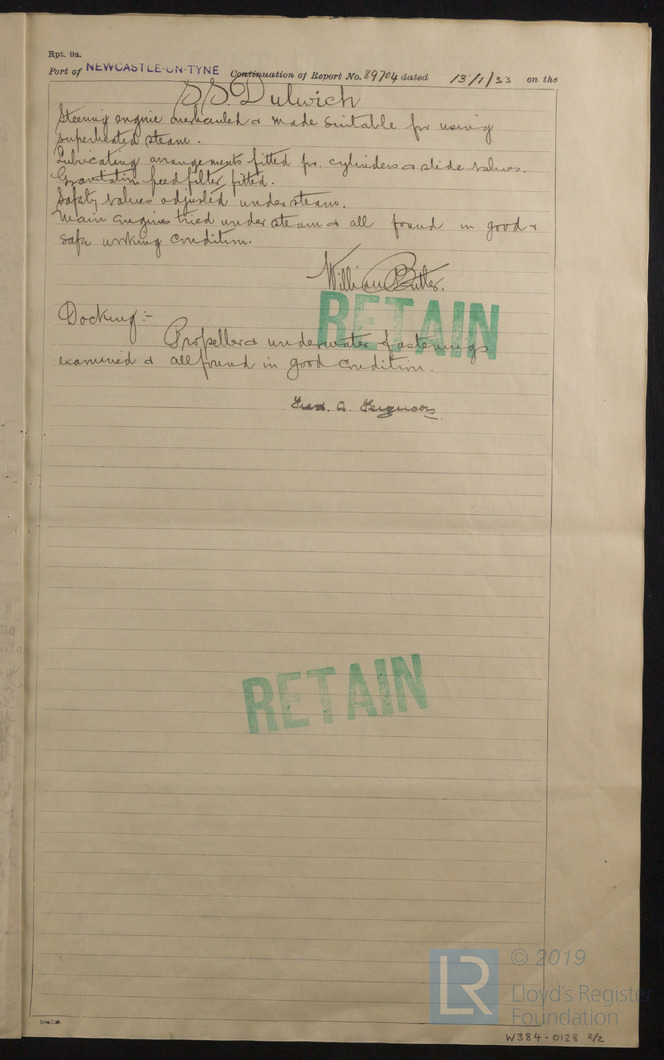 Rpt. 9a.
Port of NEWCASTLE-ON-TYNE Continuation of Report No. 89704 dated 13/1/33 on the
S.S. Dulwich
Steering engine overhauled & made suitable for using
superheated steam.
Lubricating arrangements fitted for cylinders & slide valves.
Gravitation feed filter fitted.
Safety valves adjusted under steam.
Main engines tried under steam & all found in good &
safe working condition.
William Butler.
RETAIN
Docking :-
Propeller & underwater fastenings
examined & all found in good condition.
Fred. A. Ferguson
RETAIN
LR © 2019
Lloyd's Register
Foundation
W384-0128 2/2